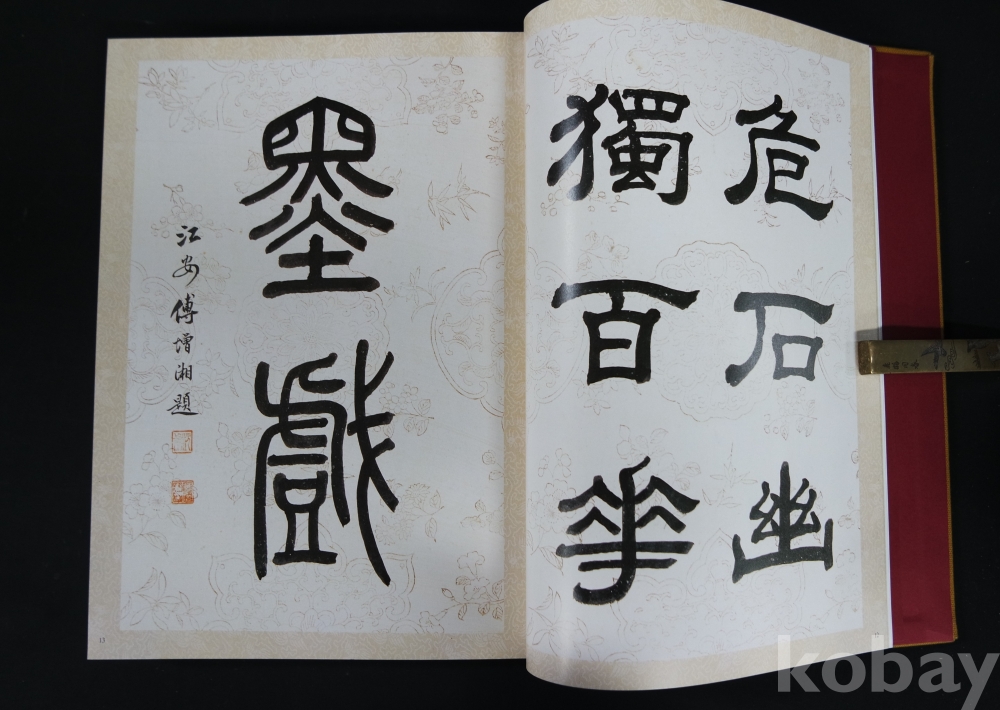 危石幽
獨百華
墨戲
江安傅增湘題
13
kobay